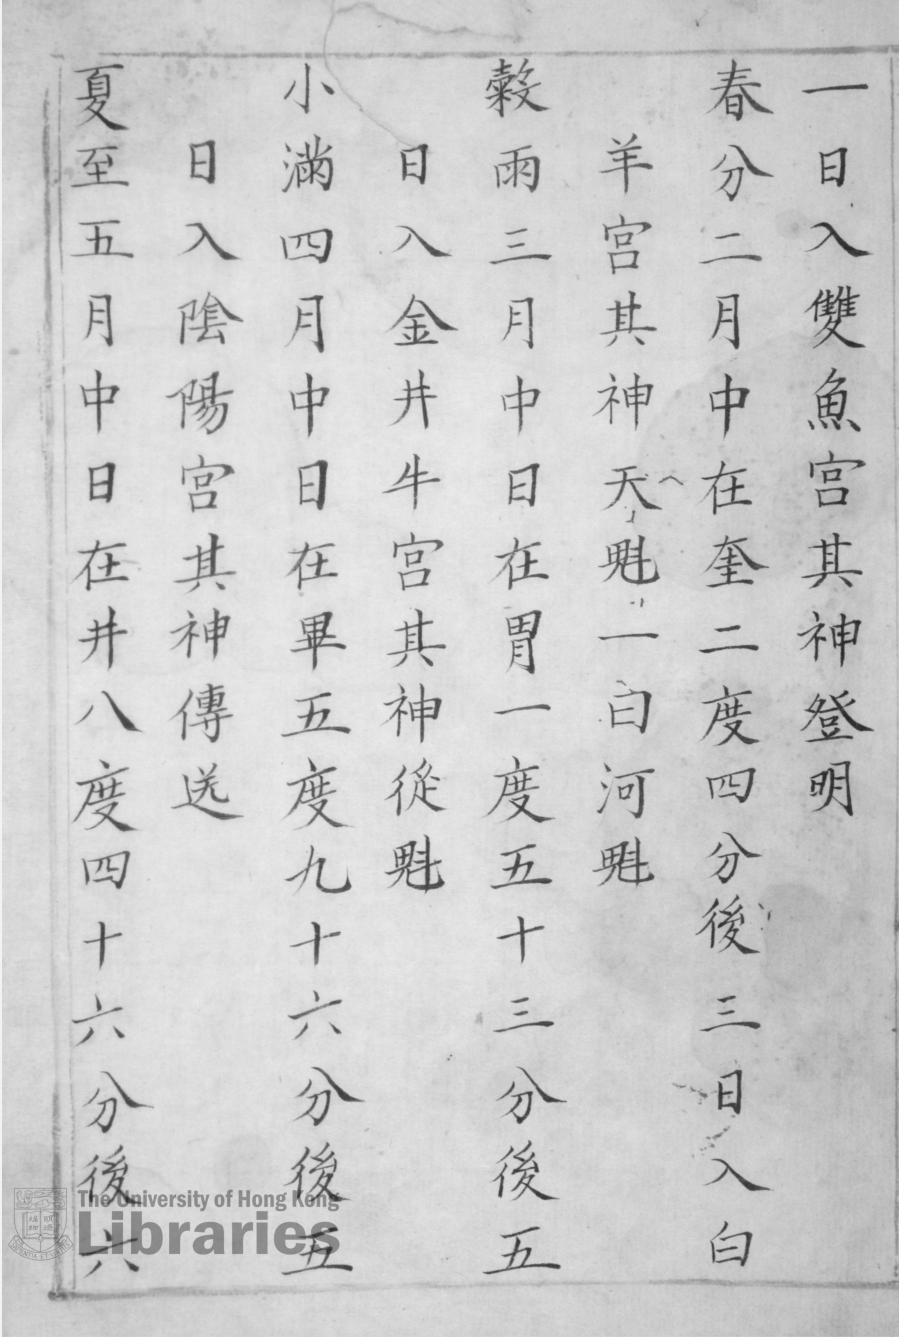 一日入雙魚宮其神登明
春分二月中在奎二度四分後三日入白
羊宮其神天魁一曰河魁
穀雨三月中日在胃一度五十三分後五
日入金井牛宮其神從魁
小滿四月中日在畢五度九十六分後五
日入陰陽宮其神傳送
夏至五月中日在井八度四十六分後六
The University of Hong Kong
Libraries